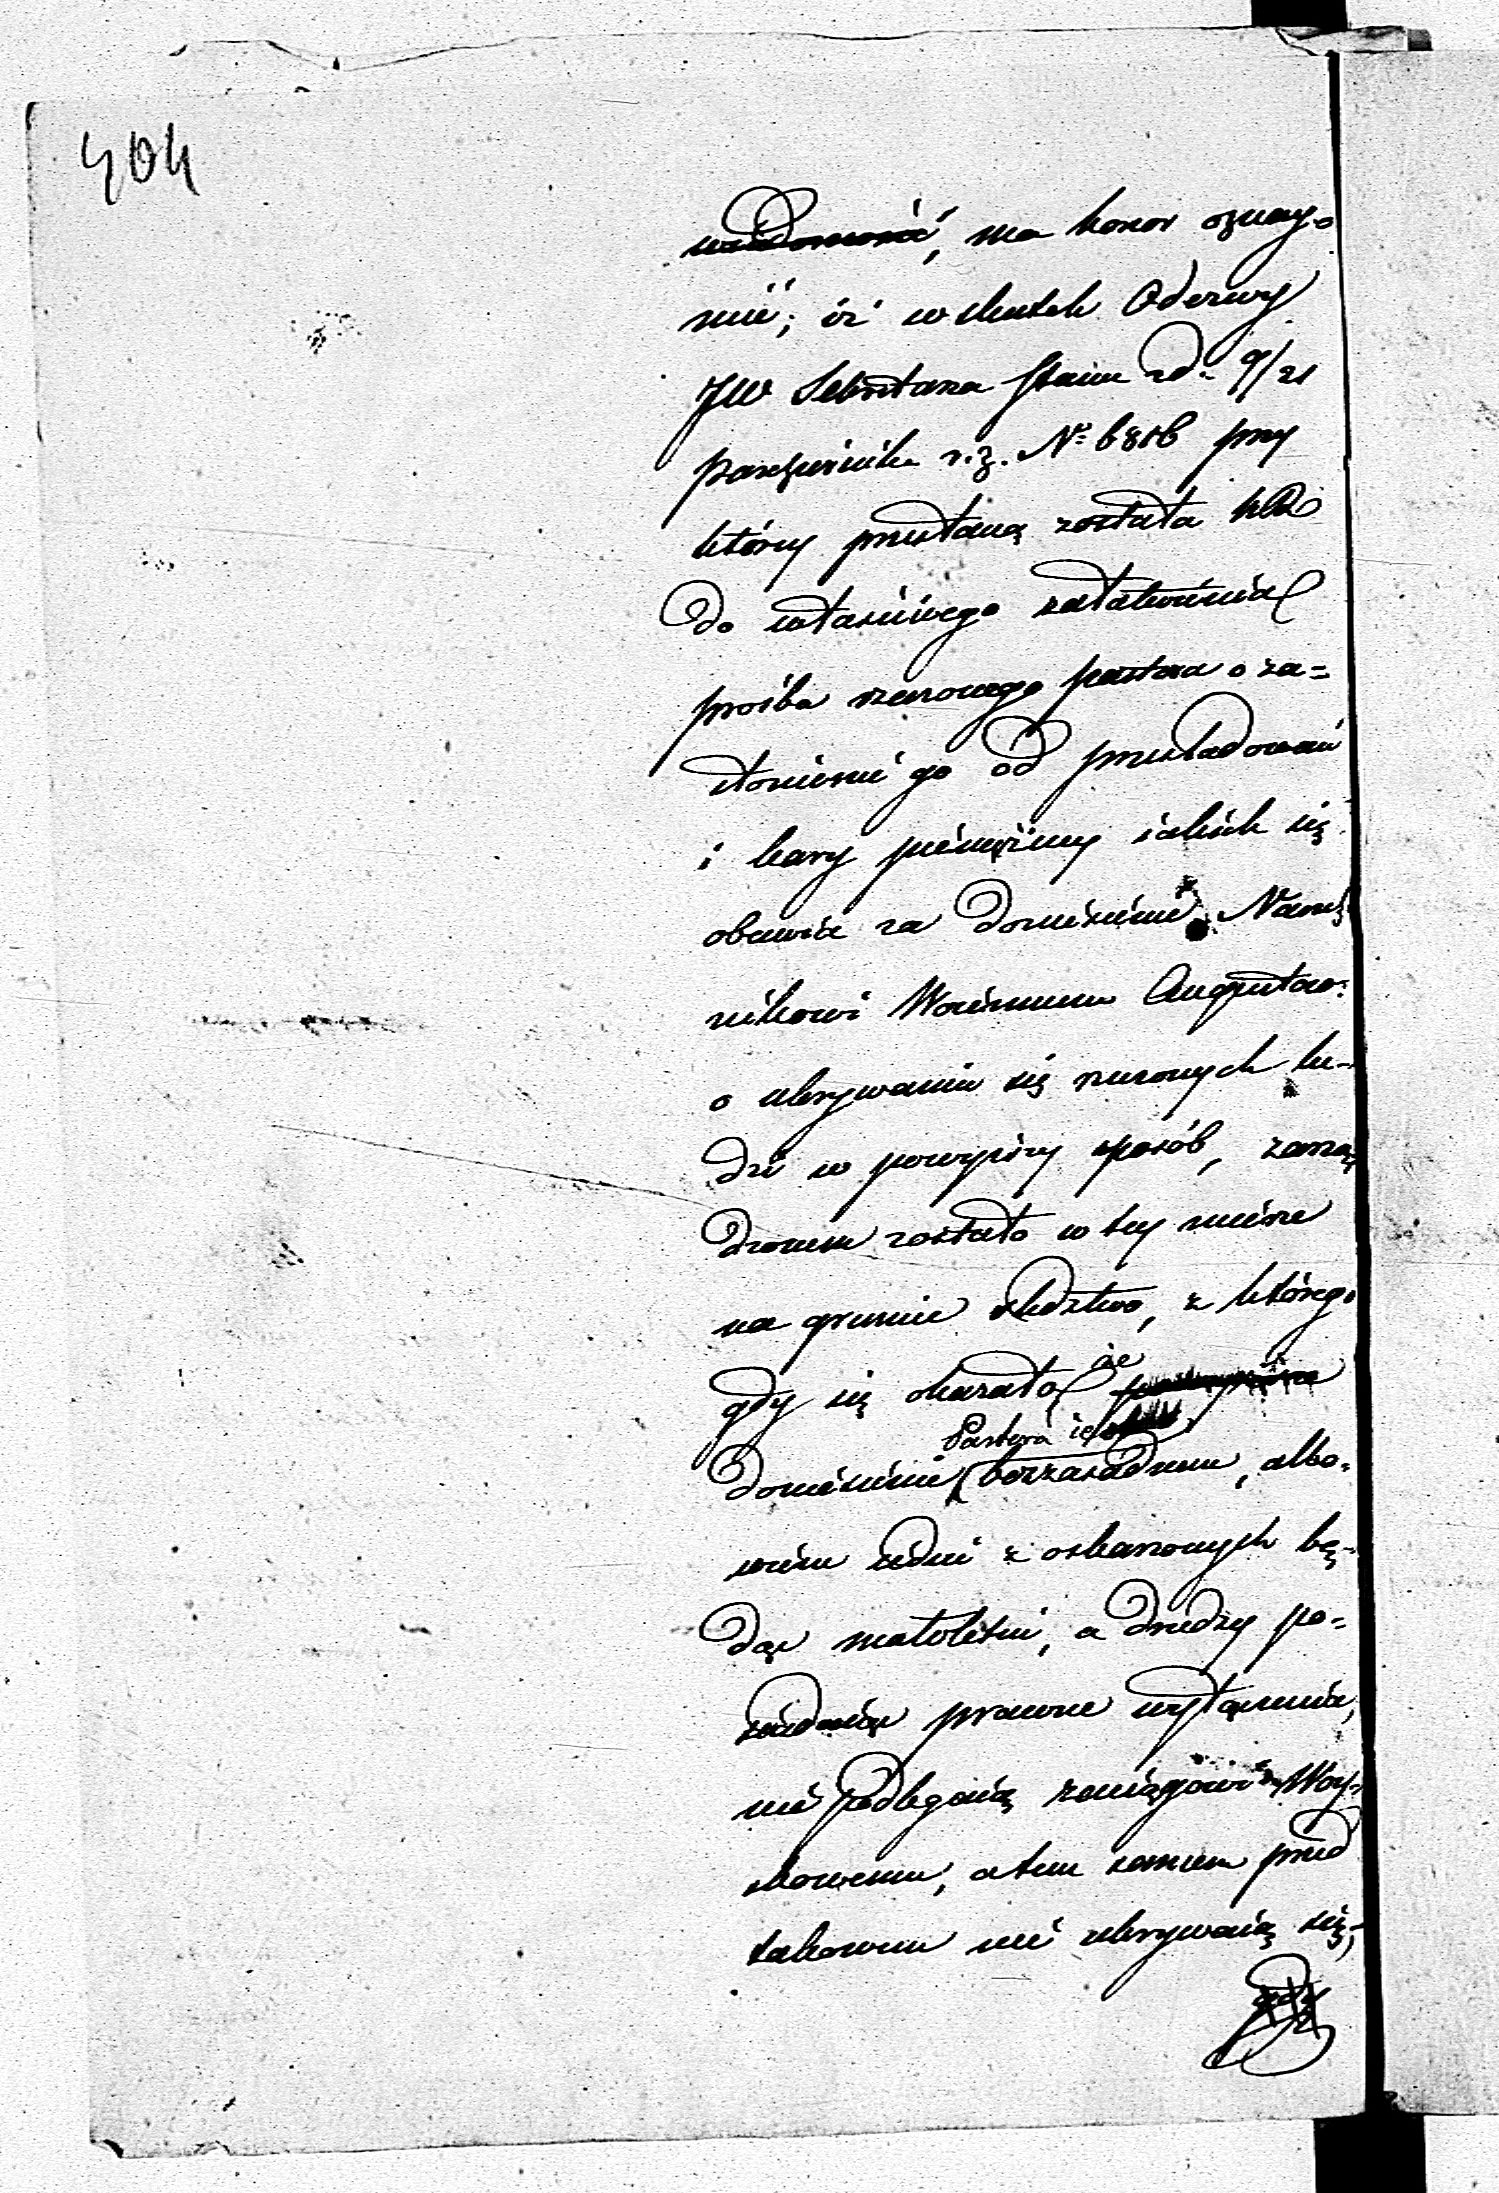 404
ma honor oznay-
mić; iż w skutek Odezwy
JW Sekretarza Stanu z d. 9/21
Października r. z. № 6816 przy
którey przesłaną została KR
do właściwego załatwienia
prośba rzeczonego pastora o za=
słonienie go od prześladowań
i kary pieniężney iakich się
obawia za doniesienie Nacze
nikowi Woiennemu Augustow:
o ukrywaniu się rzeczonych lu-
dzi w powyższy sposób, zarzą
dzonem zostało w tey mierze
na gruncie śledztwo, z którego
gdy się okazało że
Pastora iest
doniesienie bezzasadnem, albo-
wiem iedni z oskarżonych bę-
dąc małoletni, a drudzy po-
siadaiąc prawne wyłączenia,
nie podlegaią zaciągowi Woy-
skowemu, a tem samem przed
takowem nie ukrywaią się,
gdy